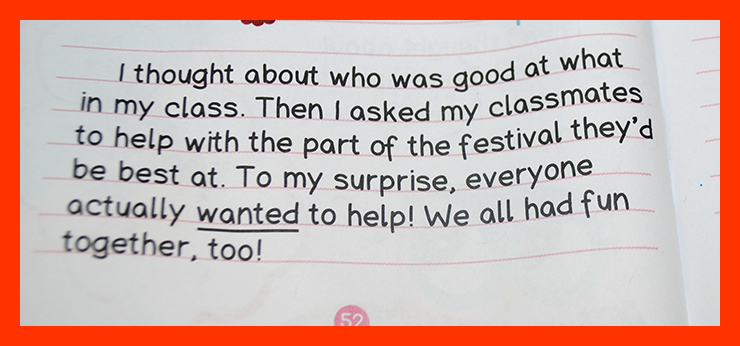 I thought about who was good at what
in my class. Then I asked my classmates
to help with the part of the festival they'd
be best at. To my surprise, everyone
actually wanted to help! We all had fun
together, too!
52